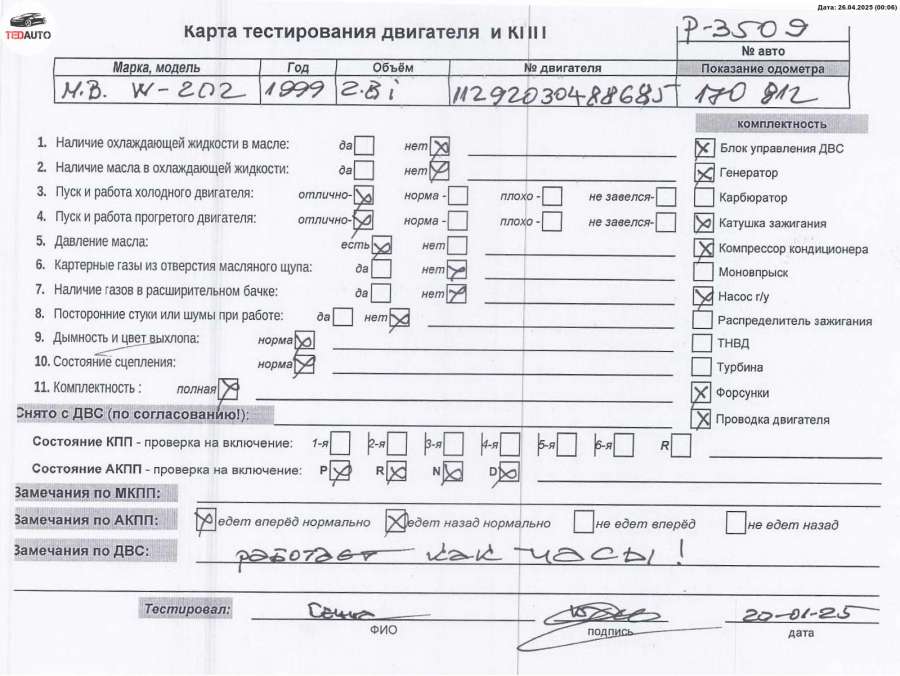 Дата: 26.04.2025 (00:06)
TEDAUTO
Карта тестирования двигателя и КПП
P-3509
№ авто
Марка, модель Год Объём № двигателя Показание одометра
M.B. W-202 1999 2.8i 11292030488685 170 812
комплектность
1. Наличие охлаждающей жидкости в масле: да нет
Блок управления ДВС
2. Наличие масла в охлаждающей жидкости: да нет
Генератор
3. Пуск и работа холодного двигателя: отлично- норма - плохо - не завелся-
Карбюратор
4. Пуск и работа прогретого двигателя: отлично- норма - плохо - не завелся-
Катушка зажигания
5. Давление масла: есть нет
Компрессор кондиционера
6. Картерные газы из отверстия масляного щупа: да нет
Моновпрыск
7. Наличие газов в расширительном бачке: да нет
Насос г/у
8. Посторонние стуки или шумы при работе: да нет
Распределитель зажигания
9. Дымность и цвет выхлопа: норма
ТНВД
10. Состояние сцепления: норма
Турбина
11. Комплектность : полная
Форсунки
Снято с ДВС (по согласованию!):
Проводка двигателя
Состояние КПП - проверка на включение: 1-я 2-я 3-я 4-я 5-я 6-я R
Состояние АКПП - проверка на включение: P R N D
Замечания по МКПП:
Замечания по АКПП: едет вперёд нормально едет назад нормально не едет вперёд не едет назад
Замечания по ДВС: работает как часы!
Тестировал: 20-01-25
ФИО подпись дата